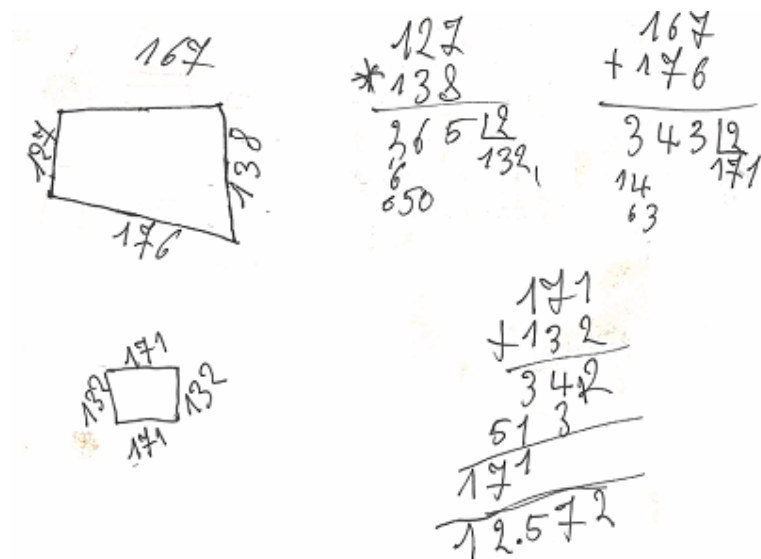 167
127
138
176
127
* 138
265 2
6 132,
050
167
+ 176
343 2
14 171
63
171
132
132
171
171
+ 132
342
513
171
12.572